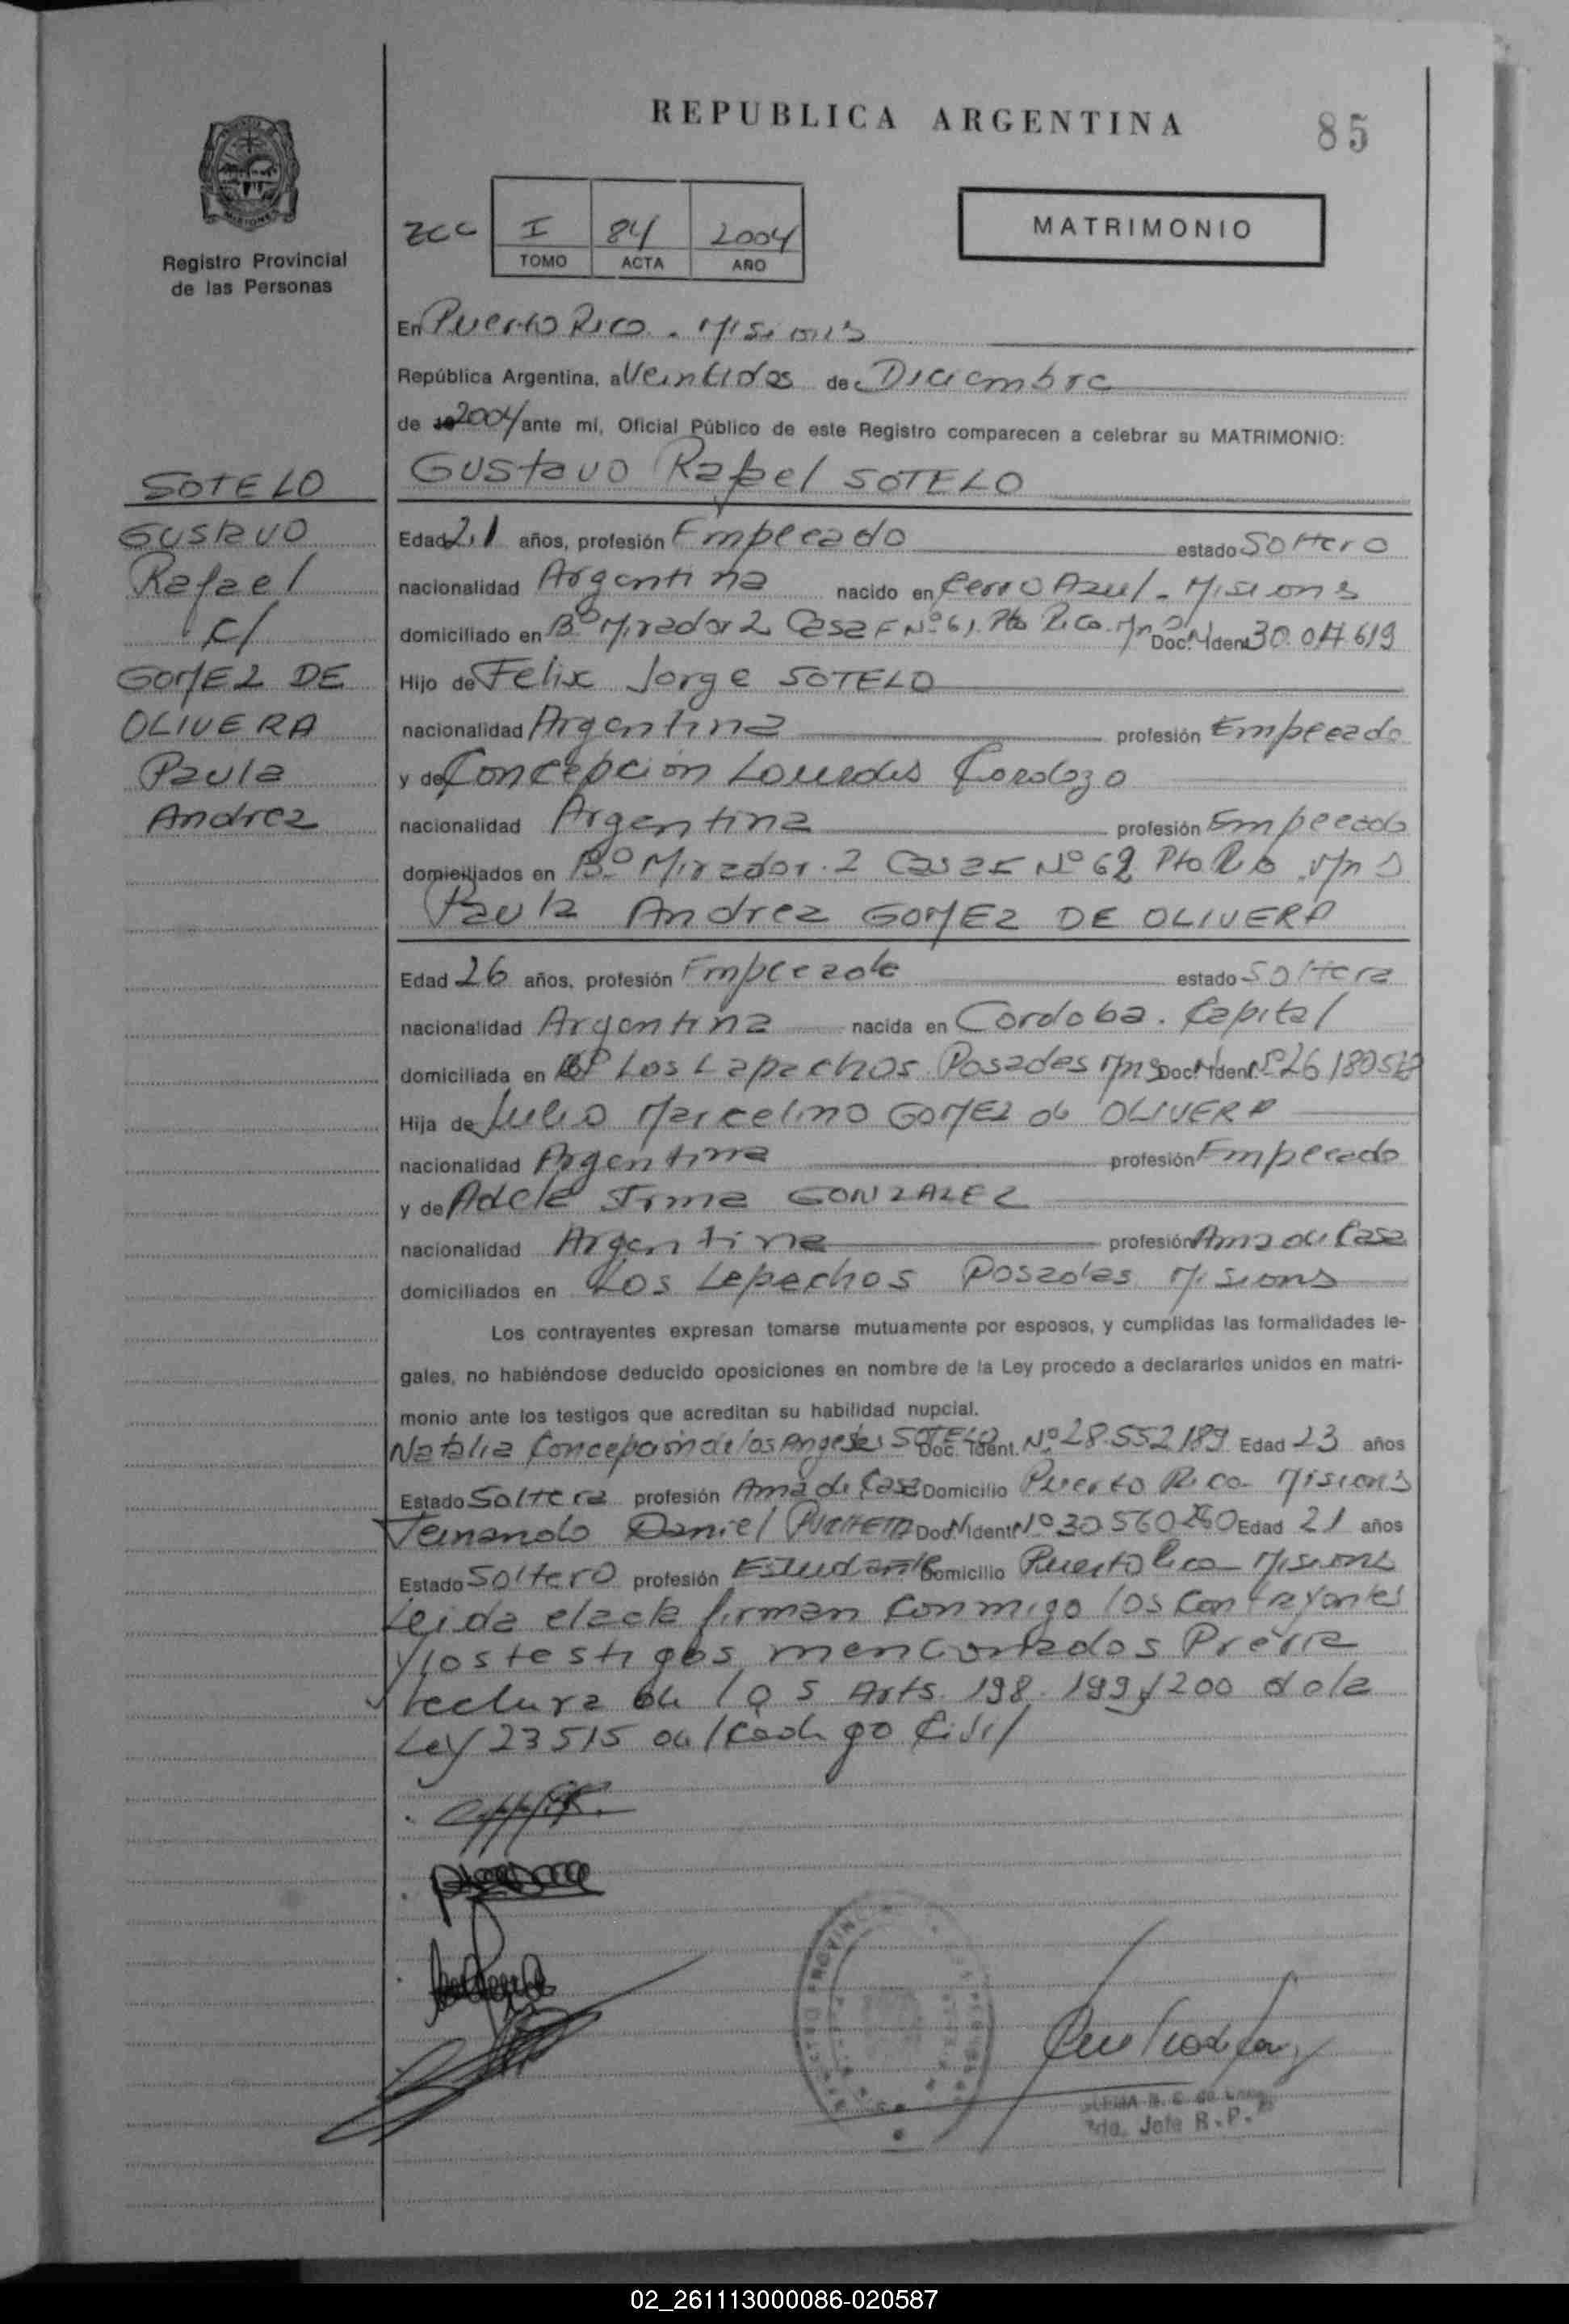 REPUBLICA ARGENTINA
85
MISIONES
Registro Provincial
de las Personas
I 84 2004
TOMO ACTA AÑO
MATRIMONIO
En Puerto Rico - Misiones
República Argentina, a Veintidos de Diciembre
de 19 2004 ante mí, Oficial Público de este Registro comparecen a celebrar su MATRIMONIO:
Gustavo Rafael SOTELO
SOTELO
Gustavo
Rafael
c/
GOMEZ DE
OLIVERA
Paula
Andrea
Edad 21 años, profesión Empleado estado Soltero
nacionalidad Argentina nacido en Cerro Azul - Misiones
domiciliado en Bº Mirador 2 Casa F Nº 61 Pto Rico Doc. Ident. 30.011.619
Hijo de Felix Jorge SOTELO
nacionalidad Argentina profesión Empleado
y de Concepcion Lourdes Cardozo
nacionalidad Argentina profesión Empleado
domiciliados en Bº Mirador 2 Casa F Nº 62 Pto Rico Mns
Paula Andrea GOMEZ DE OLIVERA
Edad 26 años, profesión Empleada estado Soltera
nacionalidad Argentina nacida en Cordoba. Capital
domiciliada en Bº Los Lapachos Posadas Mns Doc. Ident. Nº 26 1805
Hija de Julio Marcelino GOMEZ de OLIVERA
nacionalidad Argentina profesión Empleado
y de Adela Irma GONZALEZ
nacionalidad Argentina profesión Ama de Casa
domiciliados en Los Lapachos Posadas Misiones
Los contrayentes expresan tomarse mutuamente por esposos, y cumplidas las formalidades le-
gales, no habiéndose deducido oposiciones en nombre de la Ley procedo a declararlos unidos en matri-
monio ante los testigos que acreditan su habilidad nupcial.
Natalia Concepcion de los Angeles SOTELO Doc. Ident. Nº 28.552189 Edad 23 años
Estado Soltera profesión Ama de Casa Domicilio Puerto Rico Misiones
Fernando Daniel Doc. Ident. Nº 30560 Edad 21 años
Estado Soltero profesión Estudiante Domicilio Puerto Rico Misiones
Leida el acta firman conmigo los contrayentes
y los testigos mencionados Previa
lectura de los Arts. 198. 199 y 200 de la
Ley 23515 del Codigo Civil
Jefe R.P.
02_261113000086-020587